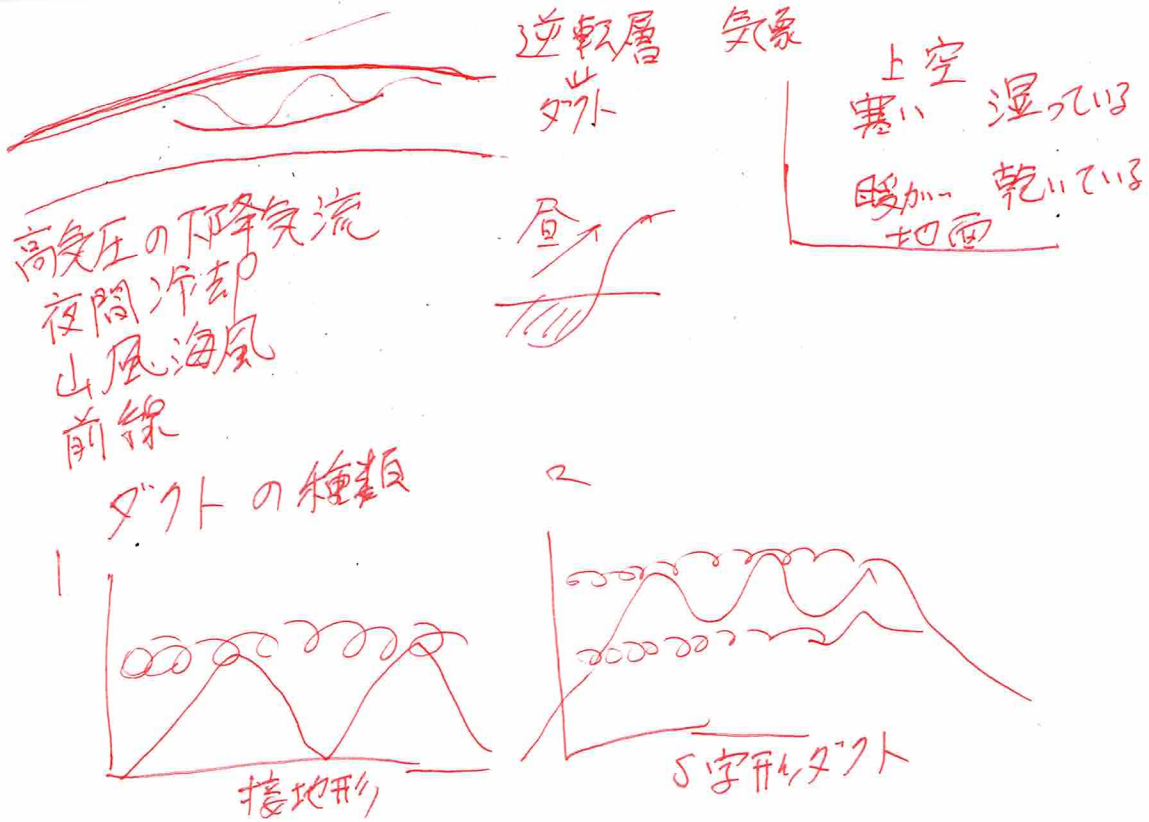 逆転層 気象
ダクト
上空
寒い 湿っている
暖かい 乾いている
地面
昼
高気圧の下降気流
夜間冷却
山風海風
前線
ダクトの種類
1
2
接地形
S字形ダクト